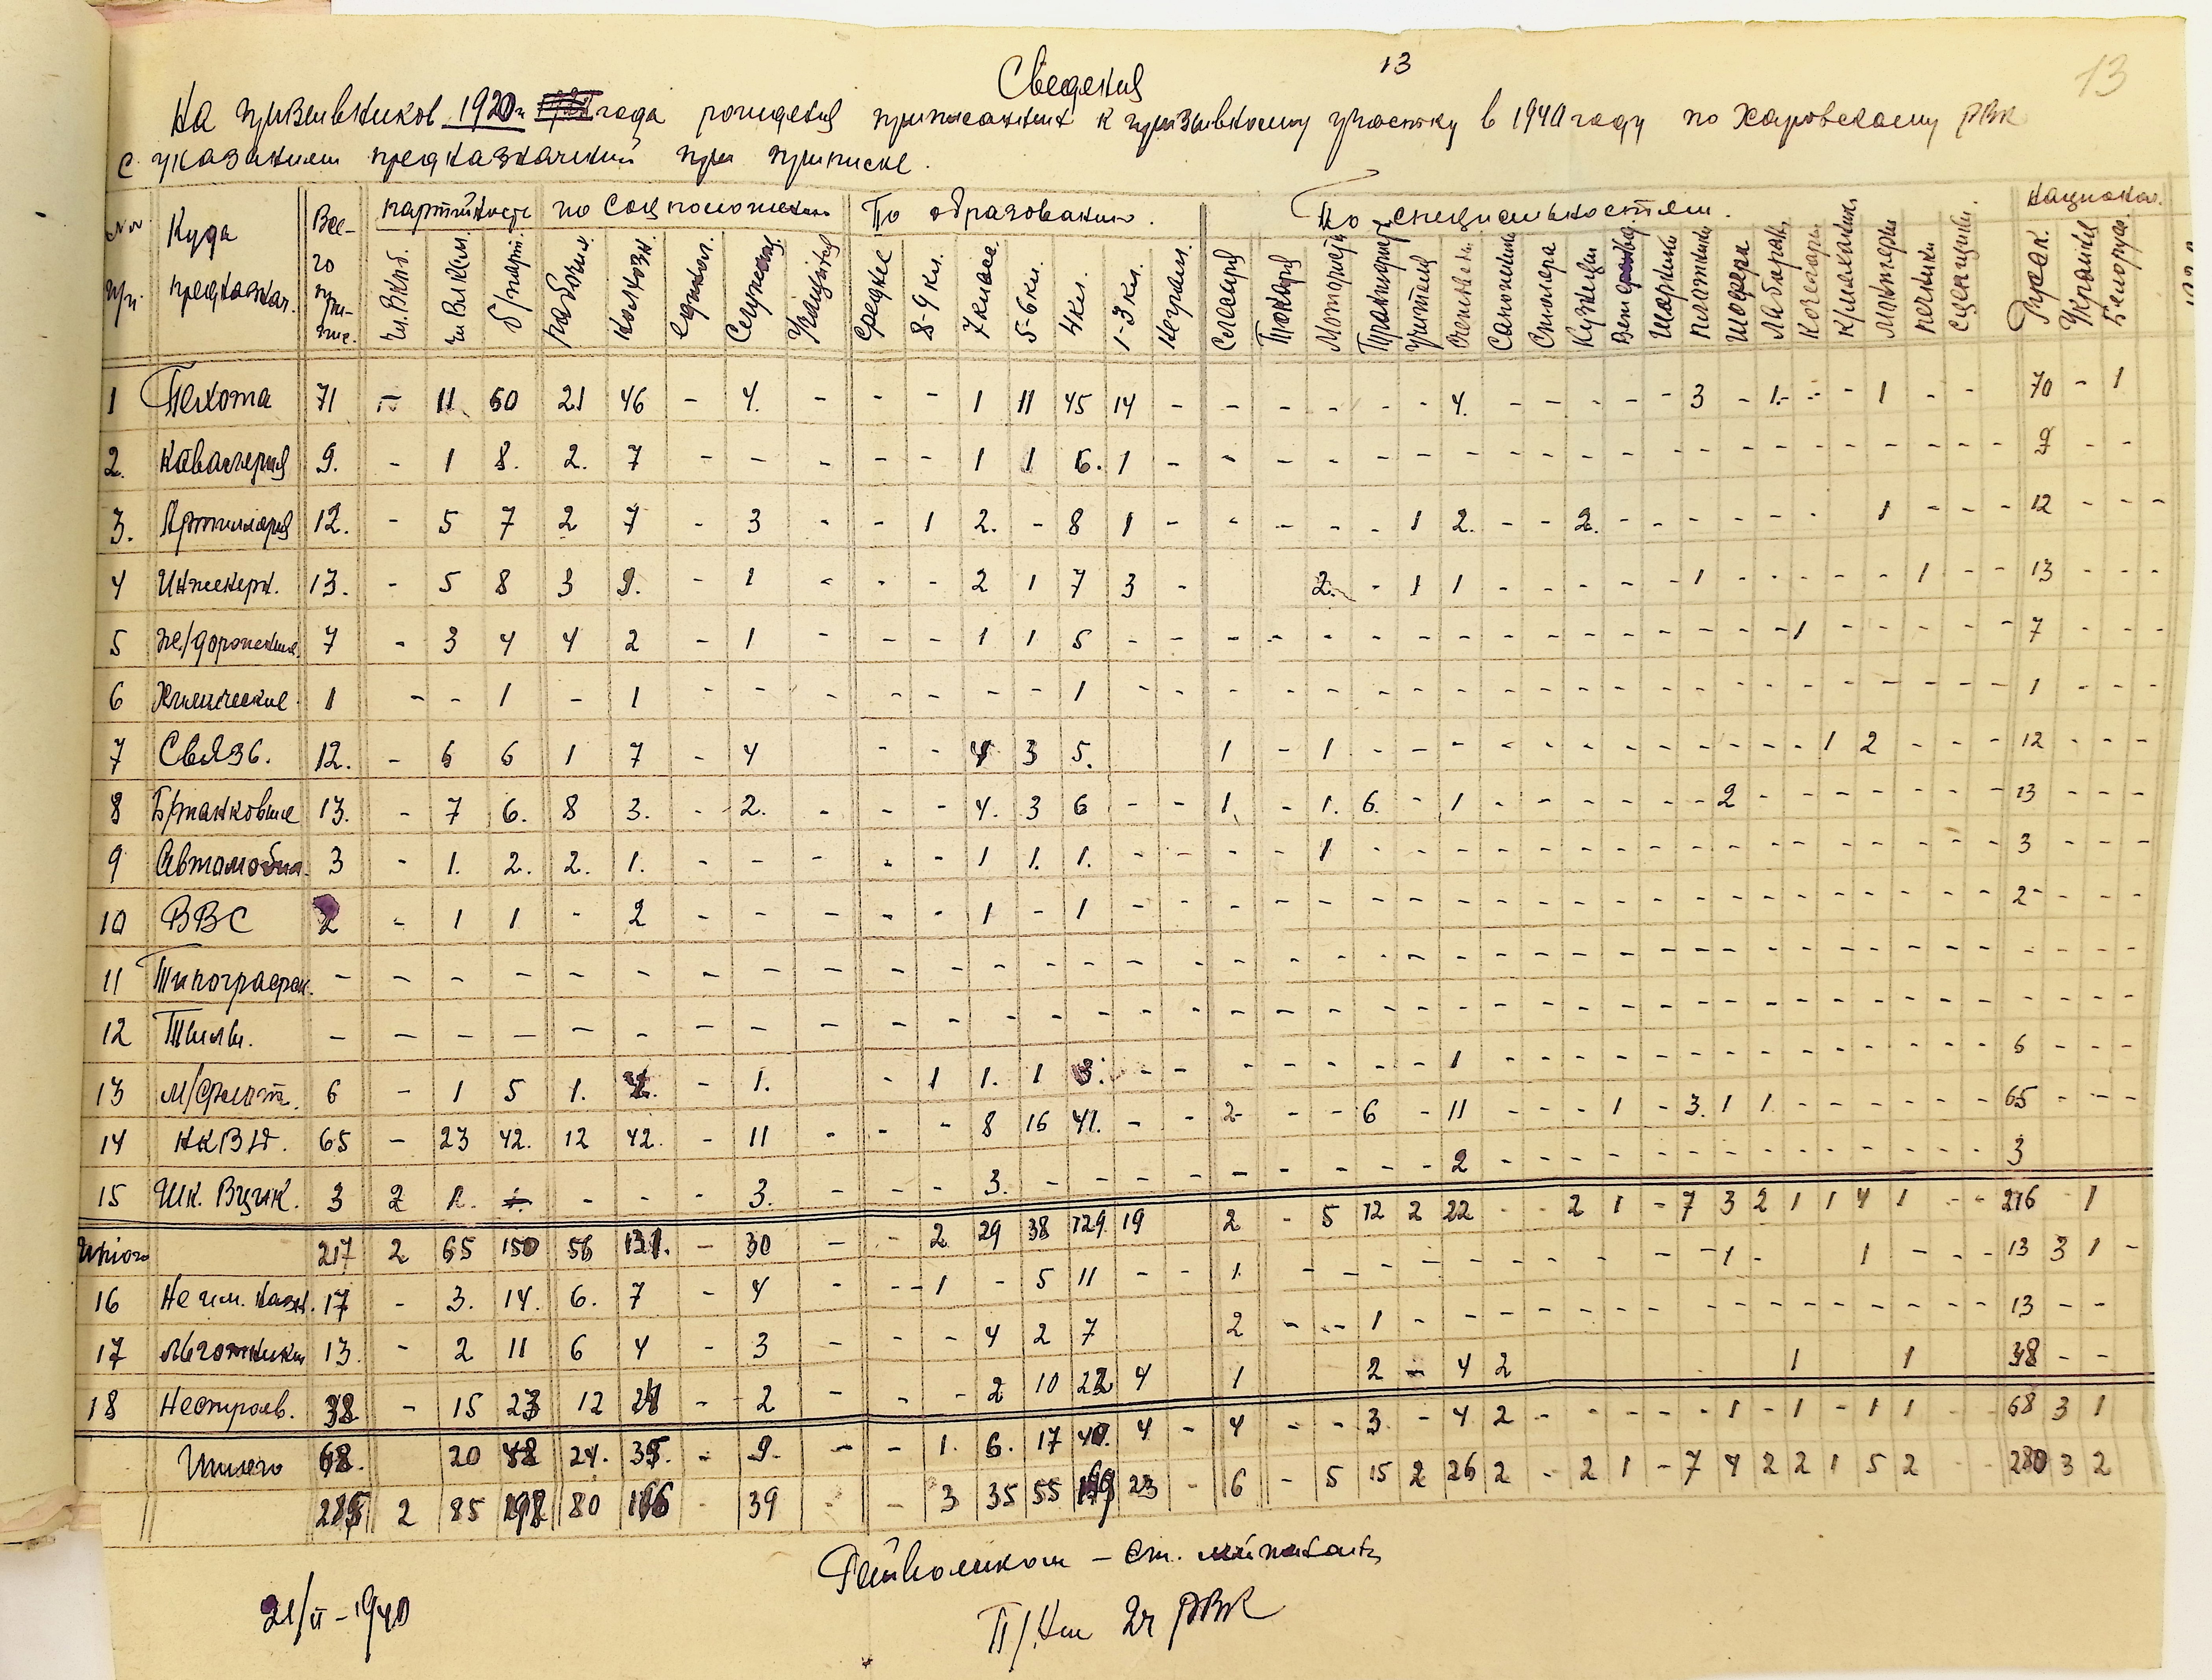 13
13
Сведения
на призывников 1920 года рождения приписанных к призывному участку в 1940 году по Харовскому РВК
с указанием предназначений при приписке.
№№ пп. Куда предназнач. Все-го при-пис. партийность по соцположению По образованию. По специальностям. национал.
чл. ВКПб. чл ВЛКСМ. б/парт. рабочих колхозн. единол. Служащ. Учащихся среднее 8-9 кл. 7 класс. 5-6 кл. 4 кл. 1-3 кл. Неграм. Слесаря Токаря Мотористы Трактористы учителя Счетовод. Сапожники Столяра Кузнецы Вет Плотники Шофера Лаборан. Кочегары К/механик Монтеры печники Сцепщики. Русск. Украин. Белорус.
1 Пехота 71 - 11 60 21 46 - 4. - - - 1 11 45 14 - - - - - - 4. - - - - - 3 - 1. - - 1 - - 70 - 1
2. Кавалерия 9. - 1 8. 2. 7 - - - - - 1 1 6. 1 - - - - - - - - - - - - - - - - - - - - 9 - -
3. Артиллерия 12. - 5 7 2 7 - 3 - - 1 2. - 8 1 - - - - - 1 2. - - 2. - - - - - - 1 - - - 12 - - -
4 Инженерн. 13. - 5 8 3 9. - 1 - - - 2 1 7 3 - 2. - 1 1 - - - - - 1 - - - - - 1 - - 13 - - -
5 же/дорожные. 7 - 3 4 4 2 - 1 - - - 1 1 5 - - - - - - - - - - - - - - - - 1 - - - - - 7 - - -
6 Химические. 1 - - 1 - 1 - - - - - - - 1 - - - - - - - - - - - - - - - - - - - - - 1 - - -
7 Связь. 12. - 6 6 1 7 - 4 - - 4 3 5. 1 - 1 - - - - - - - - - - - - 1 2 - - - 12 - - -
8 Б/танковые 13. - 7 6. 8 3. - 2. - - - 4. 3 6 - - 1. - 1. 6. - 1 - - - - - - 2 - - - - - - - 13 - - -
9 Автомобил. 3 - 1. 2. 2. 1. - - - - - 1 1. 1. - - - - 1 - - - - - - - - - - - - - - - - 3 - - -
10 ВВС 2 - 1 1 - 2 - - - - - 1 - 1 - - - - - - - - - - - - - - - - - - - - - 2 - - -
11 Типографск. - - - - - - - - - - - - - - - - - - - - - - - - - - - - - - - - - - - - - -
12 Тылы. - - - - - - - - - - - - - - - - - - - - - - - - - - - - - - - - - - - - - -
13 М/флот. 6 - 1 5 1. 4. - 1. - 1 1. 1 3. - - - - - - - 1 - - - - - - - - - - - - - - 6 - - -
14 НКВД. 65 - 23 42. 12 42. - 11 - - - 8 16 41. - - 2 - - 6 - 11 - - - 1 - 3. 1 1 - - - - - 65 - - -
15 Шк. Вцик. 3 2 1. - - - - 3. - - - 3. - - - - - - - - - 2 - - - - - - - - - - - - - 3
Итого 217 2 65 150 56 131. - 30 - - 2 29 38 129 19 2 - 5 12 2 22 - - 2 1 - 7 3 2 1 1 4 1 - - 216 - 1
16 Не им. казн. 17 - 3. 14. 6. 7 - 4 - - - 1 - 5 11 - - 1. - - - - - - - - - - - 1 - 1 - - - 13 3 1 -
17 Льготники 13. - 2 11 6 4 - 3 - - - 4 2 7 2 - - 1 - - - - - - - - - - - - - - - 13 - -
18 Нестроев. 38 - 15 23 12 24 - 2 - - - 2 10 22 4 1 2 - 4 2 1 1 38 - -
Итого 68. 20 48 24. 35. - 9. - - 1. 6. 17 40. 4 - 4 - - 3 - 4 2 - - - - - 1 - 1 - 1 1 - - 68 3 1
285 2 85 198 80 166 - 39 - - 3 35 55 169 23 - 6 - 5 15 2 26 2 - 2 1 - 7 4 2 2 1 5 2 - - 280 3 2
Райвоенком - ст. лейтенант
П/Нач 2ч РВК
21/II-1940